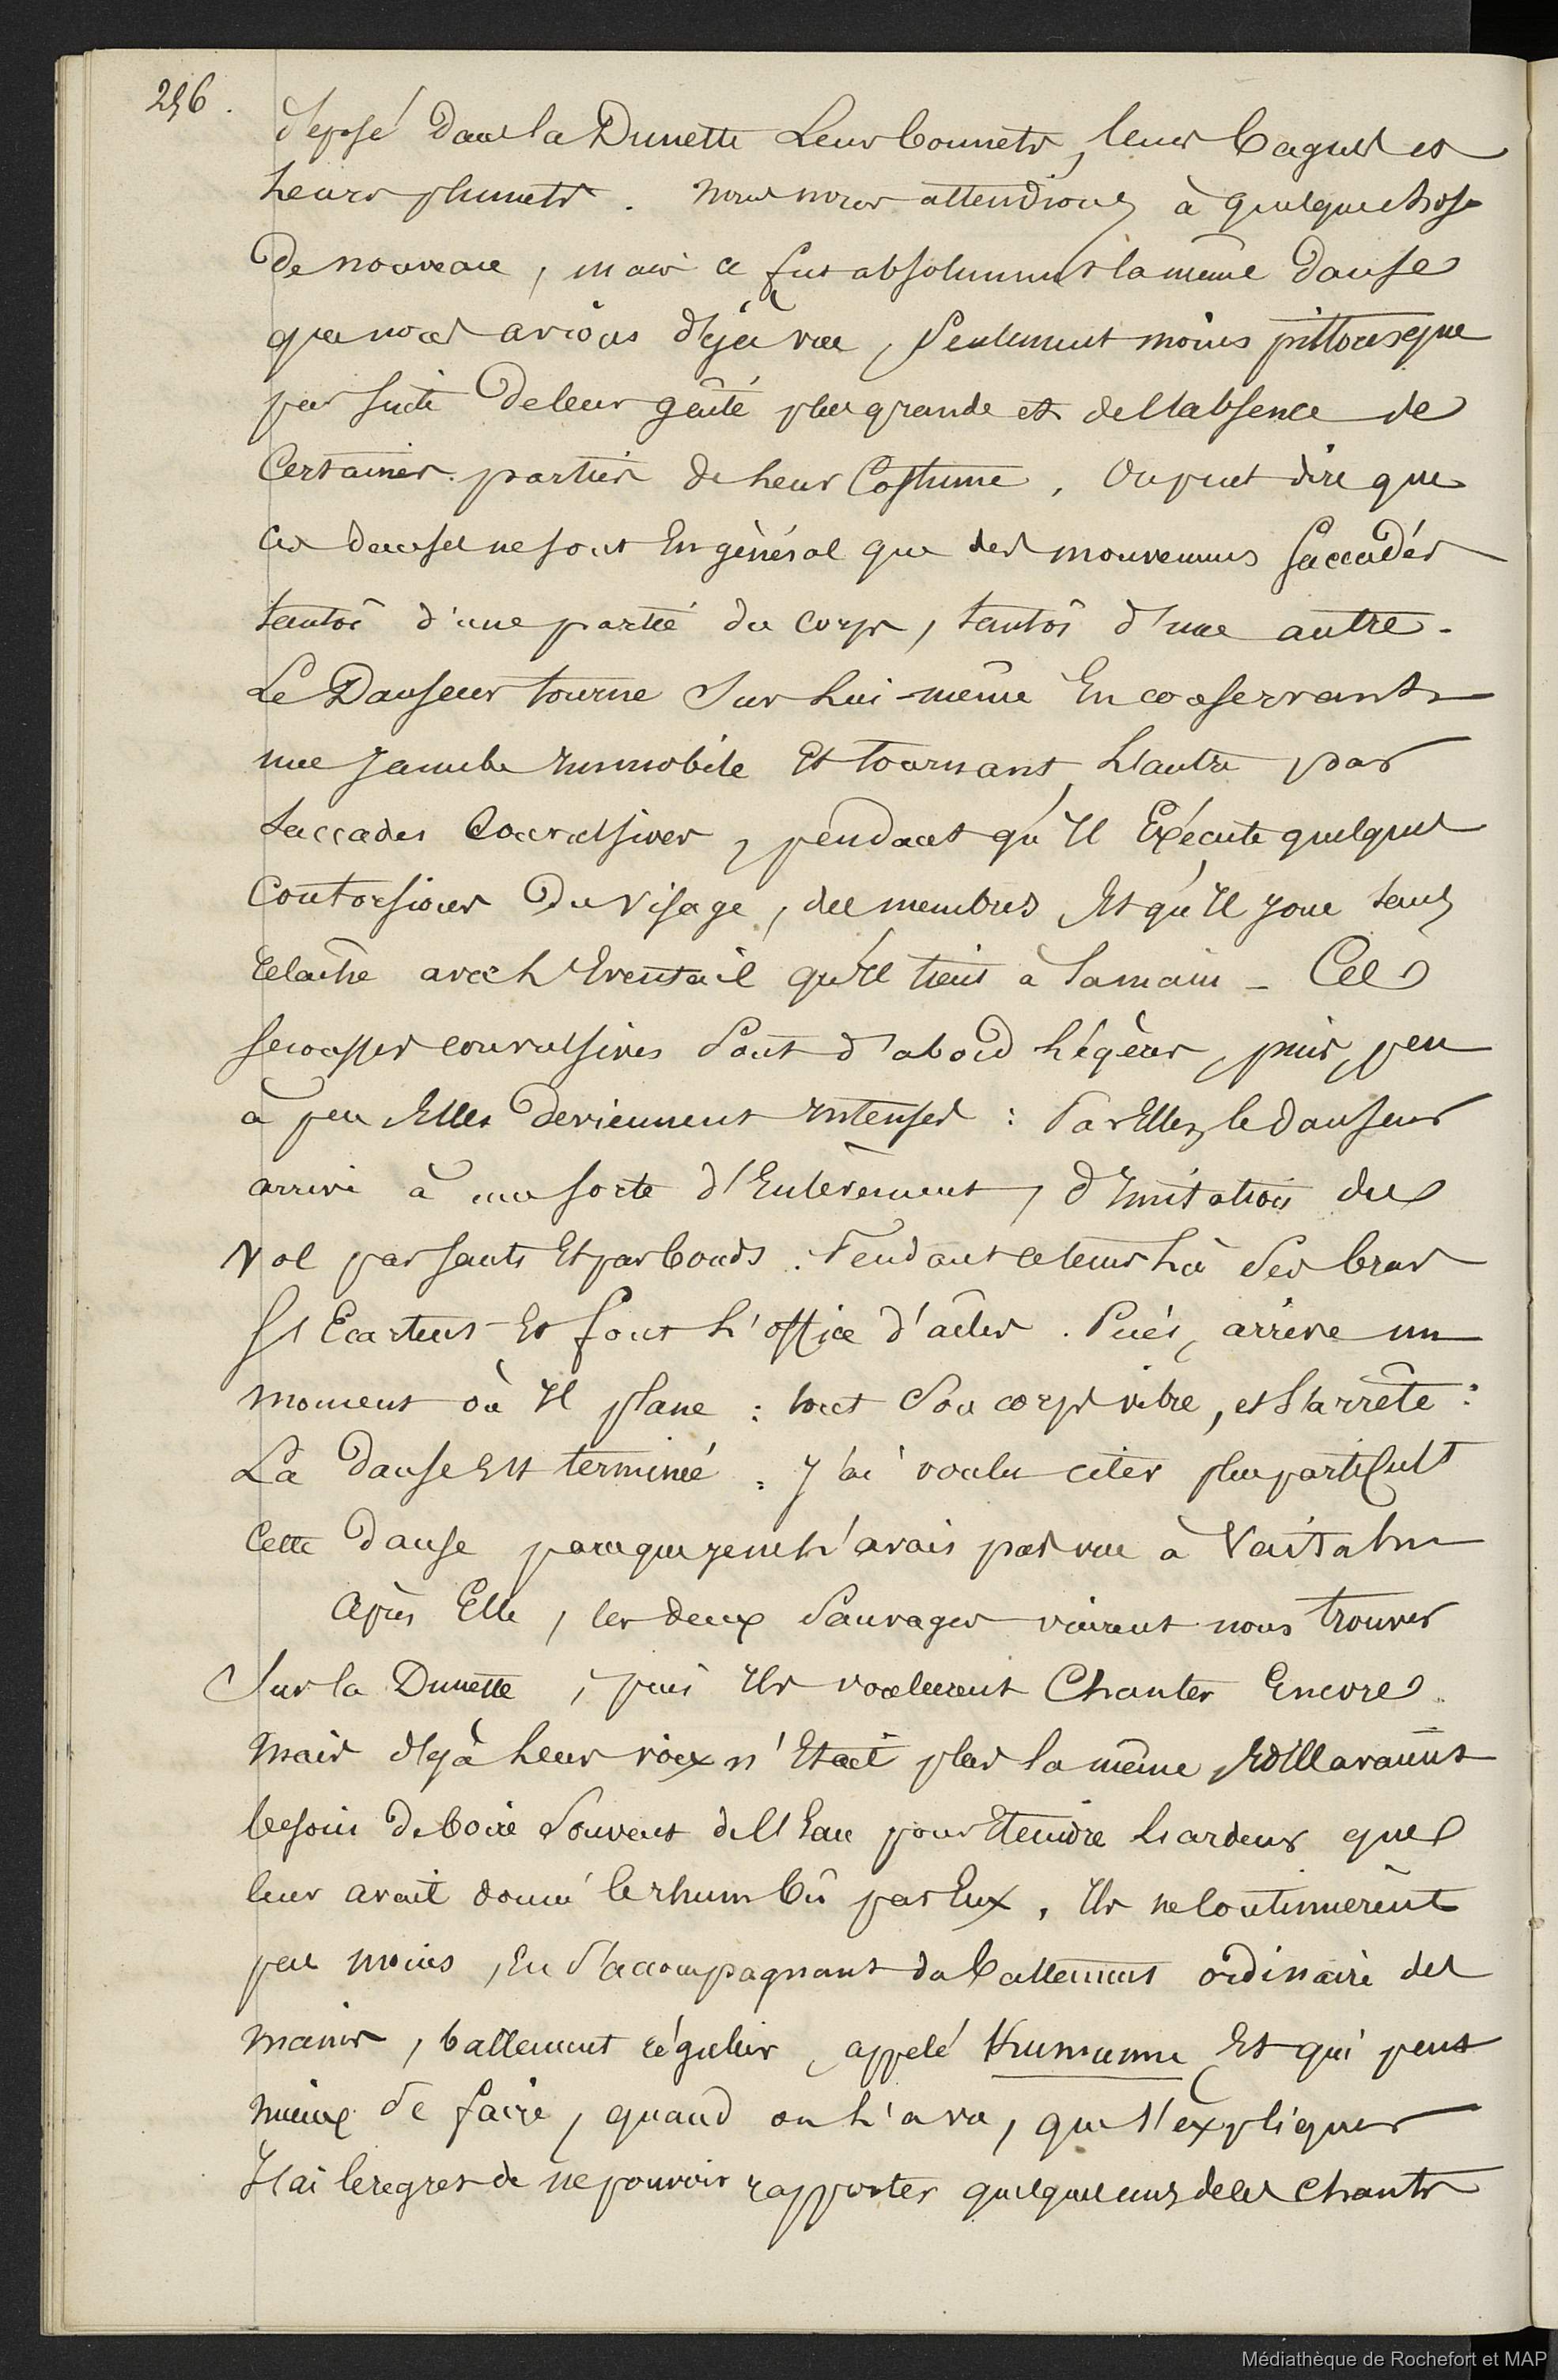 256.
déposé dans la Dunette Leurs bonnets, leurs bagues et
Leurs plumets. Nous nous attendions à quelque chose
De nouveau, mais ce fut absolument la même danse
que nous avions déjà vue, Seulement moins pittoresque
par suite De leur gaîté plus grande et de l'absence de
Certaines parties de leur Costume. On peut dire que
ces danses ne sont En général que des mouvemens Saccadés
tantôt d'une partie du corps, tantôt d'une autre.
Le Danseur tourne Sur Lui-même En conservant
une Jambe Immobile Et tournant L'autre par
Saccades Convulsives, pendant qu'Il Exécute quelques
Contorsions Du Visage, des membres Et qu'Il Joue sans
relâche avec L'Eventail qu'Il tient à La main - Ces
secousses convulsives Sont d'abord Légères, puis, peu
à peu Elles Deviennent Intenses : Par Elles, le danseur
arrive à une sorte d'Enlèvement, d'Imitation du
Vol par sauts Et par bonds. Pendant ce tems Là Ses bras
S'Ecartent Et font L'office d'aîles. Puis, arrive un
moment où Il plane : tout Son corps vibre, et S'arrête :
La Danse Est terminée. J'ai voulu citer plus particult
Cette Danse parce que je ne L'avais pas vue à Vaitahu
Après Elle, les deux Sauvages vinrent nous trouver
Sur la Dunette, puis Ils voulurent Chanter Encore.
Mais déjà Leur voix n'Etait plus la même, Et Ils avaient
besoin De boire Souvent de l'Eau pour Eteindre L'ardeur que
leur avait donné le rhum bû par Eux. Ils ne Continuèrent
pas moins, En S'accompagnant du battement ordinaire des
mains, battement régulier, appelé Kumumu Et qui peut
mieux Se faire, quand on L'a vu, que S'expliquer
J'ai le regret de ne pouvoir rapporter quelques uns de ces Chants
Médiathèque de Rochefort et MAP